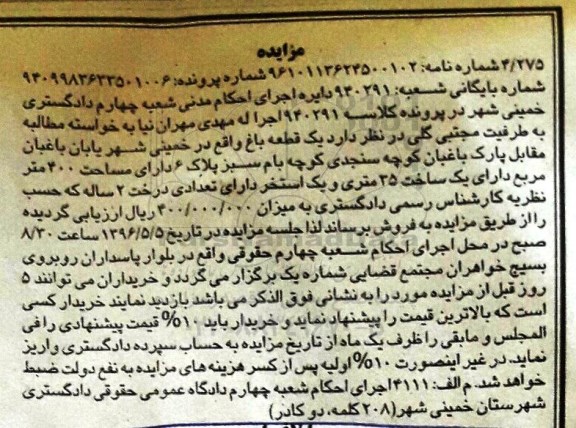 مزایده
۴/۲۷۵ شماره نامه: ۹۶۱۰۱۱۳۶۲۴۵۰۰۱۰۲ شماره پرونده: ۹۴۰۹۹۸۳۶۳۳۵۰۱۰۰۶
شماره بایگانی شعبه: ۹۴۰۲۹۱ دایره اجرای احکام مدنی شعبه چهارم دادگستری
خمینی شهر در پرونده کلاسه ۹۴۰۲۹۱ اجرا له مهدی مهران نیا به خواسته مطالبه
به طرفیت مجتبی گلی در نظر دارد یک قطعه باغ واقع در خمینی شهر یابان باغبان
مقابل پارک باغبان کوچه سنجدی کوچه بام سبز پلاک ۶ دارای مساحت ۴۰۰ متر
مربع دارای یک ساخت ۳۵ متری و یک استخر دارای تعدادی درخت ۲ ساله که حسب
نظریه کارشناس رسمی دادگستری به میزان ۴۰۰/۰۰۰/۰۰۰ ریال ارزیابی گردیده
را از طریق مزایده به فروش برساند لذا جلسه مزایده در تاریخ ۱۳۹۶/۵/۵ ساعت ۸/۳۰
صبح در محل اجرای احکام شعبه چهارم حقوقی واقع در بلوار پاسداران روبروی
بسیج خواهران مجتمع قضایی شماره یک برگزار می گردد و خریداران می توانند ۵
روز قبل از مزایده مورد را به نشانی فوق الذکر می باشد بازدید نمایند خریدار کسی
است که بالاترین قیمت را پیشنهاد نماید و خریدار باید ۱۰% قیمت پیشنهادی را فی
المجلس و مابقی را ظرف یک ماه از تاریخ مزایده به حساب سپرده دادگستری واریز
نماید. در غیر اینصورت ۱۰% اولیه پس از کسر هزینه های مزایده به نفع دولت ضبط
خواهد شد. م الف: ۴۱۱۱ اجرای احکام شعبه چهارم دادگاه عمومی حقوقی دادگستری
شهرستان خمینی شهر (۲۰۸ کلمه، دو کادر)